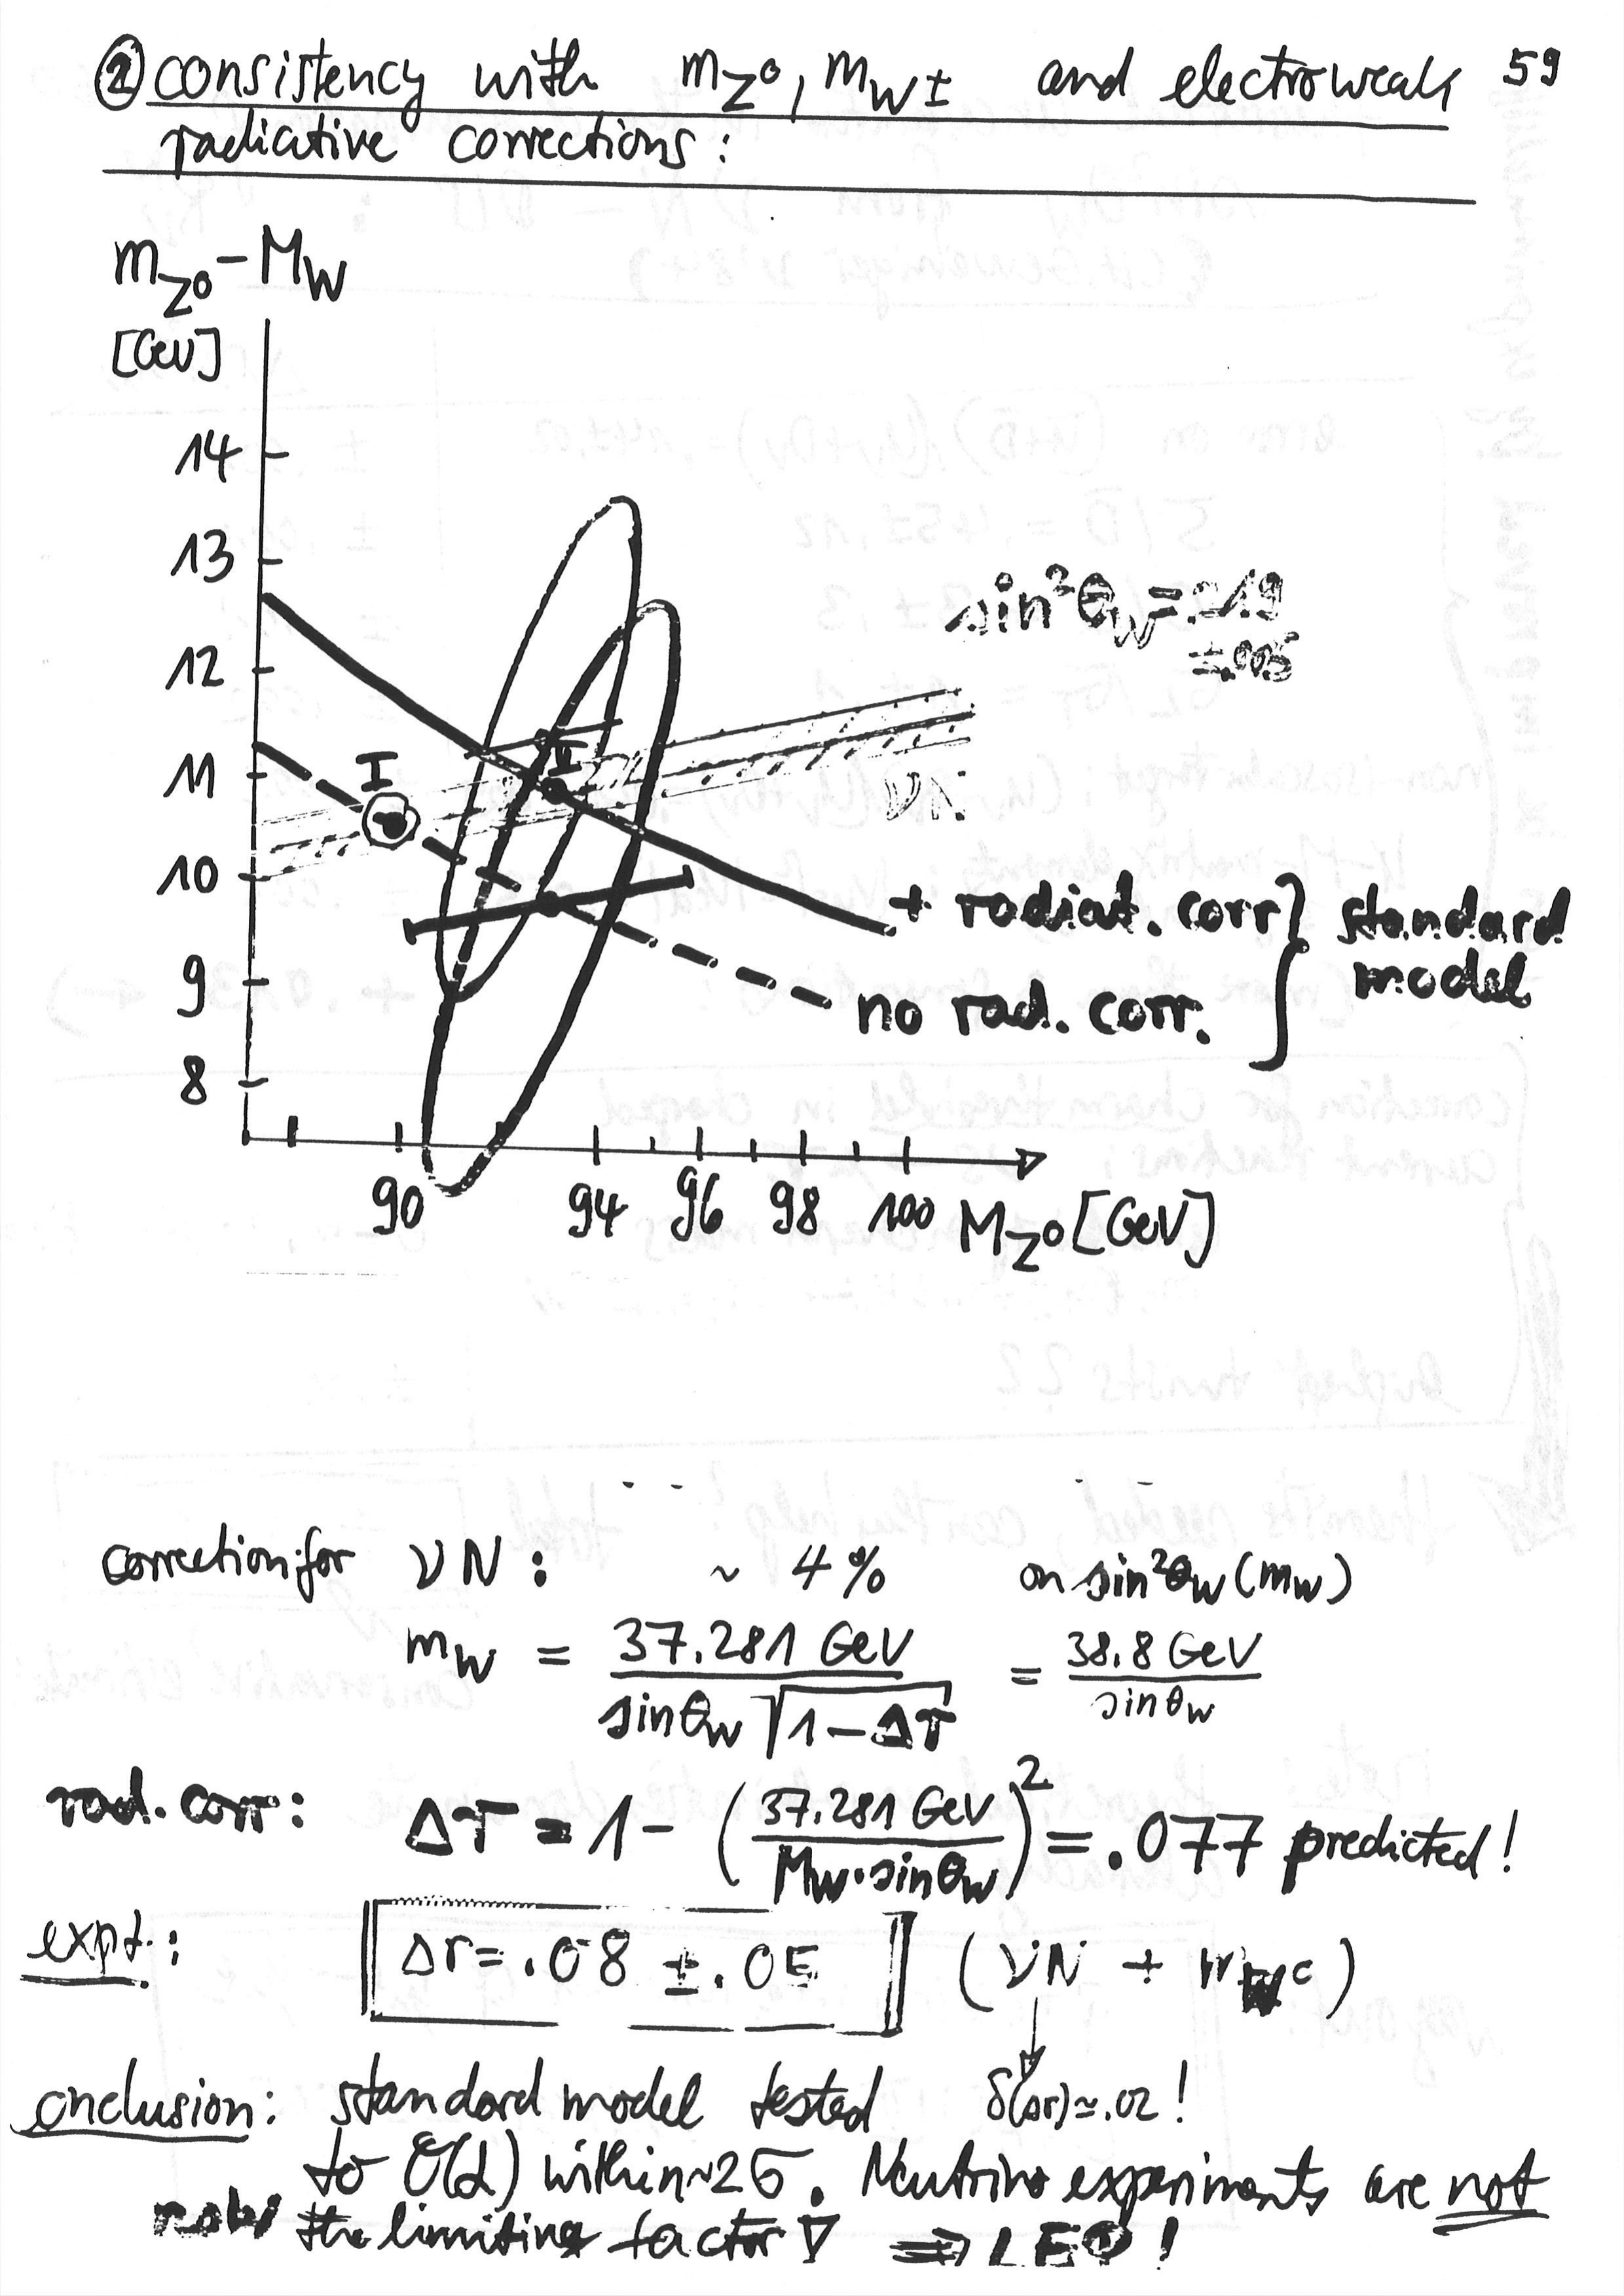 ② consistency with m_Z⁰, m_W± and electroweak 59
radiative corrections:
m_Z⁰ - M_W
[GeV]
14
13
12
11
10
9
8
sin²θ_W = .219
±.005
I
II
νN
+ radiat. corr } standard
no rad. corr. } model
90 94 96 98 100 M_Z⁰ [GeV]
correction for νN: ~ 4% on sin²θ_W (m_W)
m_W = 37.281 GeV / (sinθ_W √(1-Δr)) = 38.8 GeV / sinθ_W
rad. corr: Δr = 1 - (37.281 GeV / (M_W · sinθ_W))² = .077 predicted!
expt.: Δr = .08 ± .05 (νN +
conclusion: standard model tested δ(Δr) ≈ .02!
to O(α) within ~2σ. Neutrino experiments are not
now the limiting factor! ⇒ LEP!